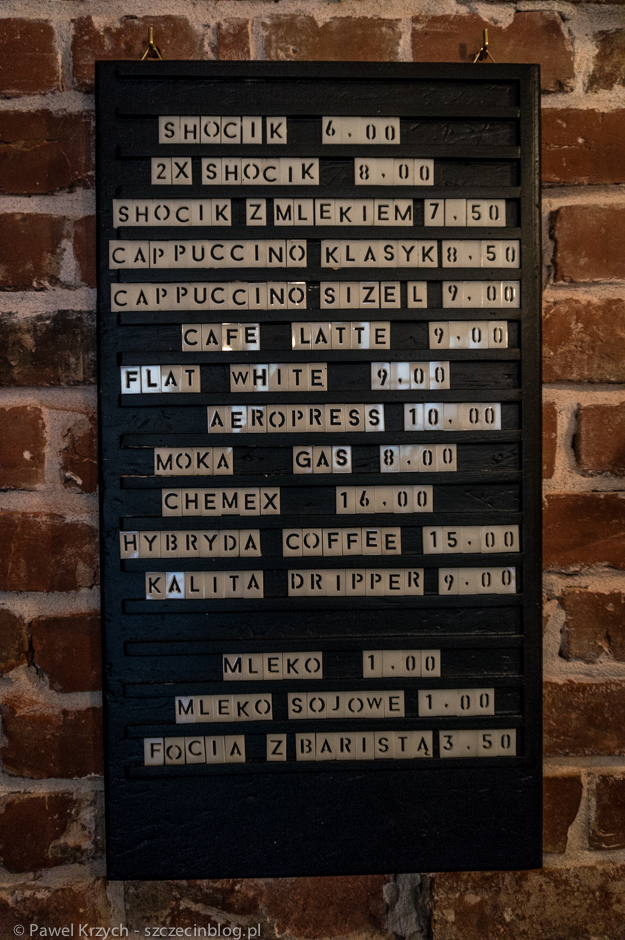 SHOCIK 6.00
2X SHOCIK 8.00
SHOCIK Z MLEKIEM 7.50
CAPPUCCINO KLASYK 8.50
CAPPUCCINO SIZEL 9.00
CAFE LATTE 9.00
FLAT WHITE 9.00
AEROPRESS 10.00
MOKA GAS 8.00
CHEMEX 16.00
HYBRYDA COFFEE 15.00
KALITA DRIPPER 9.00
MLEKO 1.00
MLEKO SOJOWE 1.00
FOCIA Z BARISTĄ 3.50
© Pawel Krzych - szczecinblog.pl